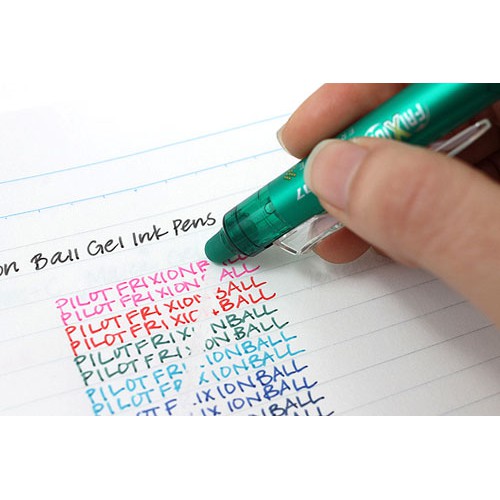 FRIXION
07
on Ball Gel Ink Pens
PILOT FRIXION BALL
PILOT FRIXION BALL
PILOT FRIXIO BALL
PILOT FRIXIO BALL
PILOT FRIXI ONBALL
PILOT FRI ON BALL
PILOT FR IONBALL
PILOT F XIONBALL
PILOT F IXIONBALL
IXIONBALL
ONBALL